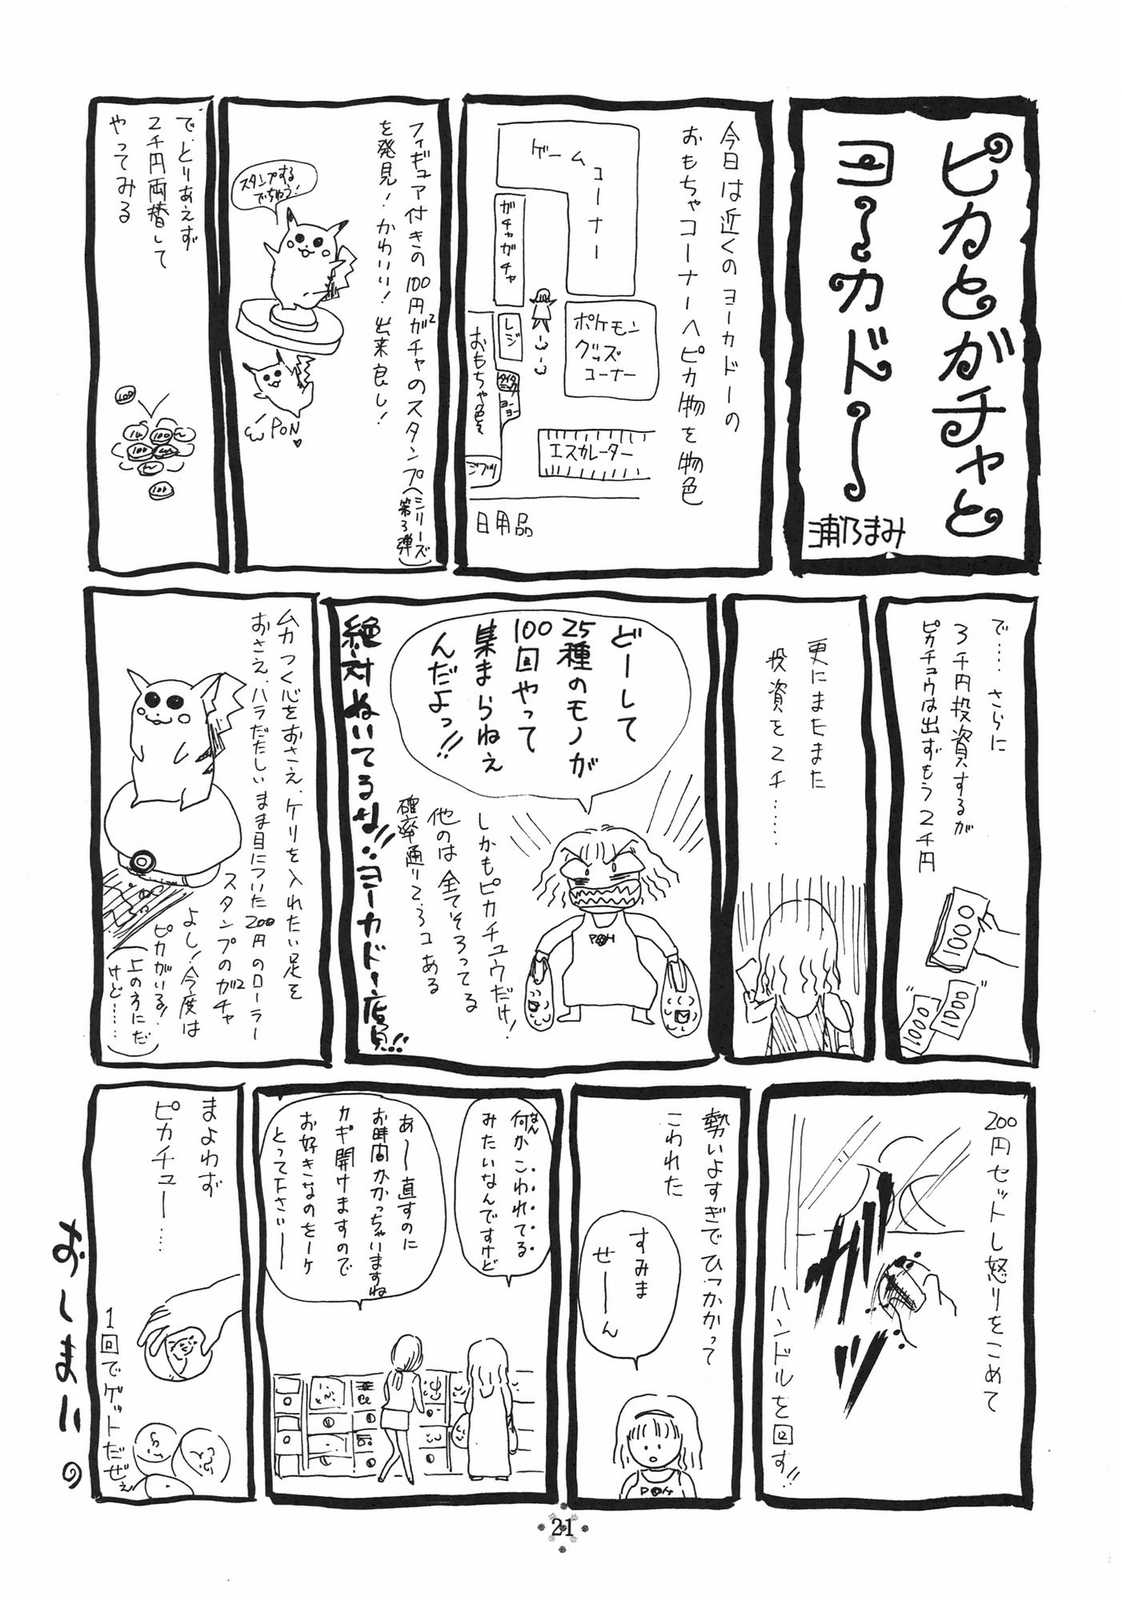 ピカとガチャと
ヨーカドー
浦乃まみ
今日は近くのヨーカドーの
おもちゃコーナーへピカ物を物色
ゲームコーナー
ガチャガチャ
レジ
ポケモン
グッズ
コーナー
おもちゃ色々
ヨーヨー
ジブリ
エスカレーター
日用品
フィギュア付きの100円ガチャのスタンプ(シリーズ第3弾)
を発見!かわいい!出来良し!
スタンプする
でちゅう!
PON
で、とりあえず
2千円両替して
やってみる
100
100
100
100
で……さらに
3千円投資するが
ピカチュウは出ずもう2千円
1000
1000
1000
更にまたまた
投資を2千……
どーして
25種のモノが
100回やって
集まらねぇ
んだよっ!!
しかもピカチュウだけ!
他のは全てそろってる
確率通り2、3コある
絶対ぬいてるな!!ヨーカドー店員!!
POH
ムカつく心をおさえ、ケリを入れたい足を
おさえ、ハラだたしいまま目についた200円のローラー
スタンプのガチャ
よし!今度は
ピカがいる!
(上の方にだ
けど……)
200円セットし怒りをこめて
ハンドルを回す!!
ガガッ
勢いよすぎでひっかかって
こわれた
すみま
せーーん
POH
何かこわれてる
なん
みたいなんですけど
あー直すのに
お時間かかっちゃいますね
カギ開けますので
お好きなのをーケ
とって下さいーー
まよわず
ピカチュー……
1回でゲットだぜぇ
おーしまいの
21